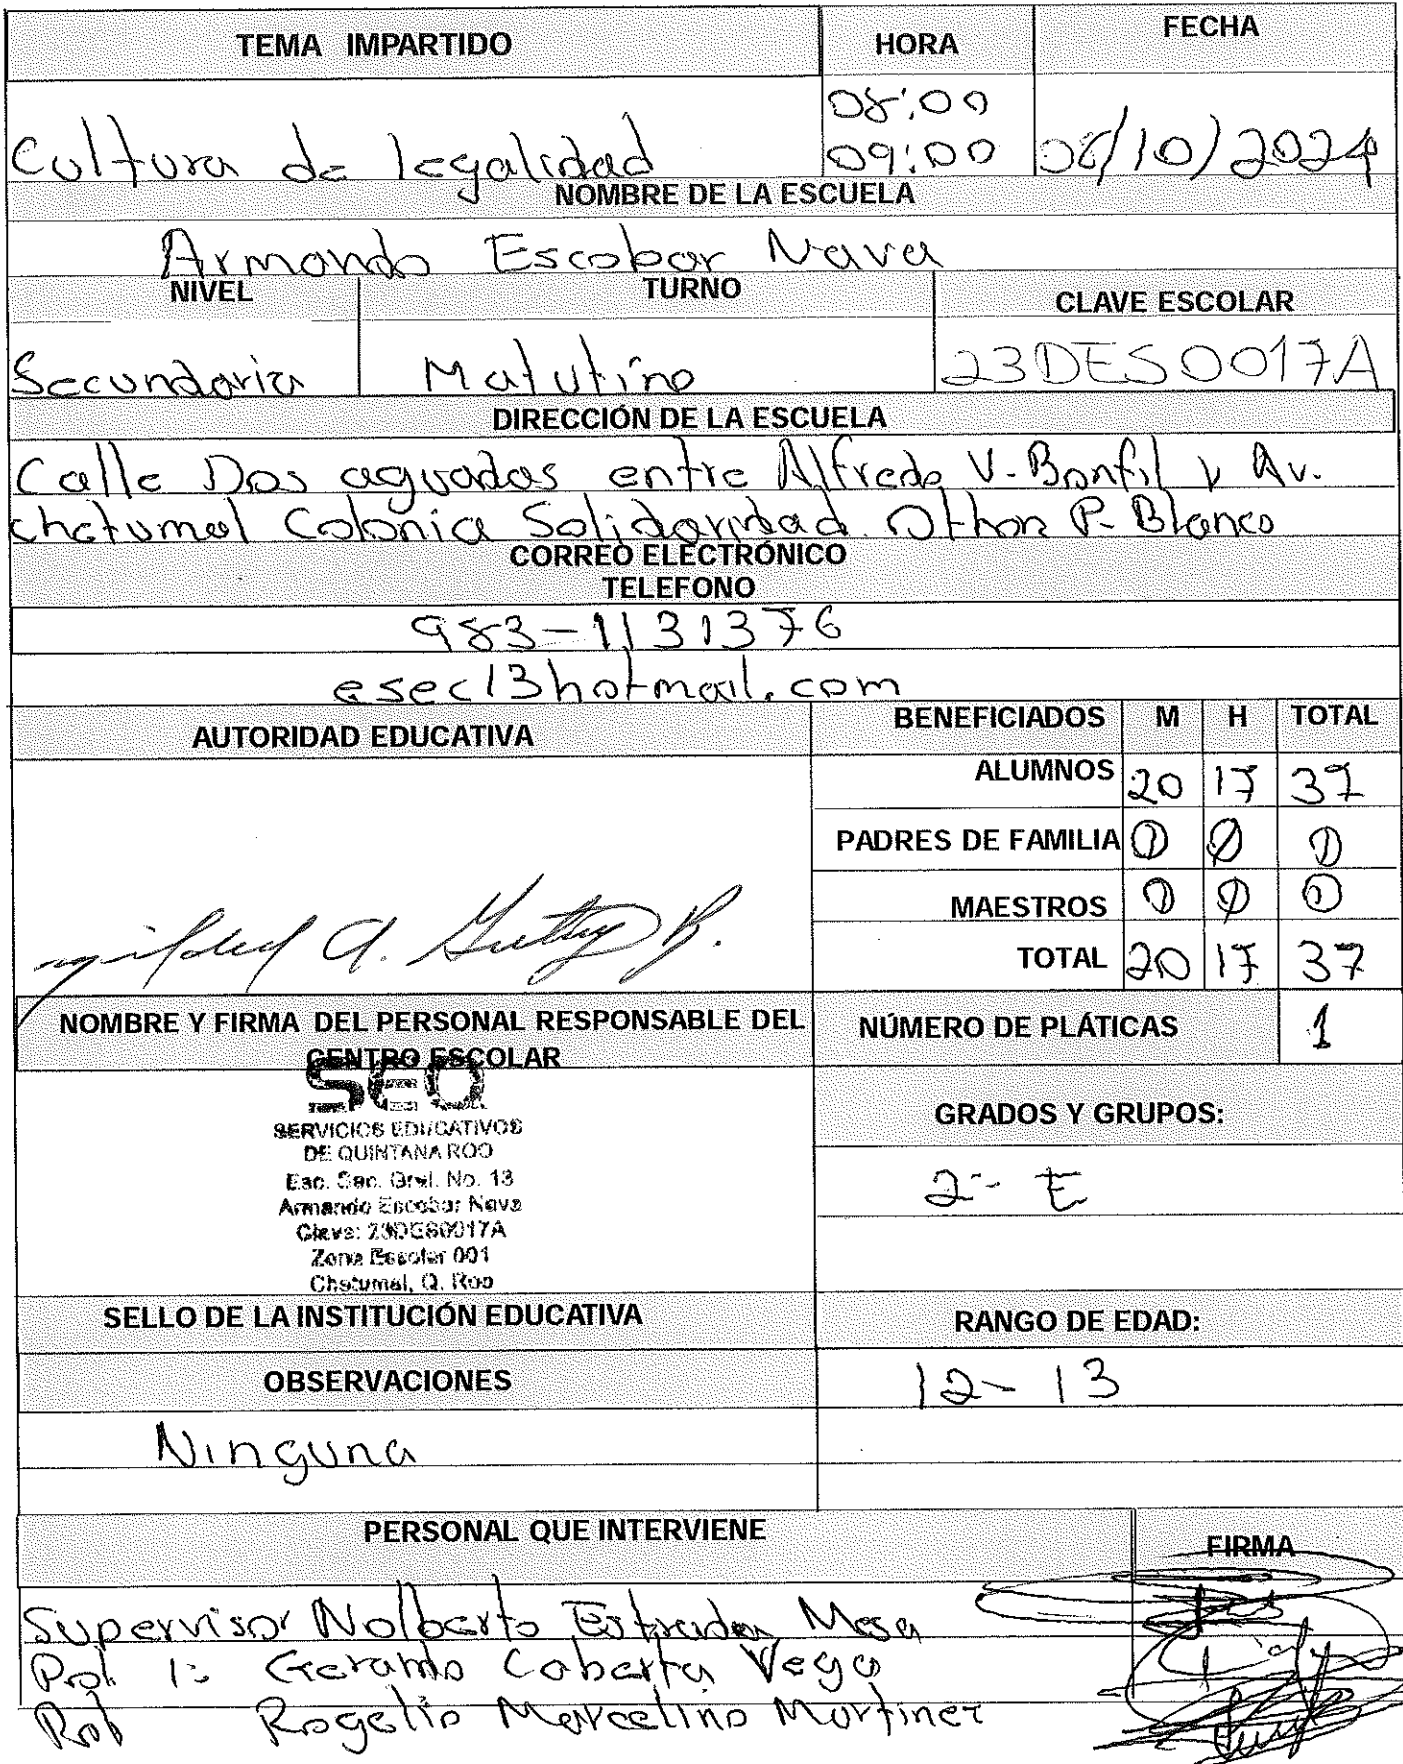 TEMA IMPARTIDO HORA FECHA
08:00
Cultura de legalidad 09:00 06/10/2024
NOMBRE DE LA ESCUELA
Armando Escobar Nava
NIVEL TURNO CLAVE ESCOLAR
Secundaria Matutino 23DES0017A
DIRECCIÓN DE LA ESCUELA
Calle Dos aguadas entre Alfredo V. Bonfil y Av.
chetumal Colonia Solidaridad. Othon P. Blanco
CORREO ELECTRÓNICO
TELEFONO
983-1131376
esec13hotmail.com
AUTORIDAD EDUCATIVA BENEFICIADOS M H TOTAL
ALUMNOS 20 17 37
PADRES DE FAMILIA 0 0 0
MAESTROS 0 0 0
TOTAL 20 17 37
NOMBRE Y FIRMA DEL PERSONAL RESPONSABLE DEL CENTRO ESCOLAR
NÚMERO DE PLÁTICAS 1
SEQ
SERVICIOS EDUCATIVOS
DE QUINTANA ROO
Esc. Sec. Gral. No. 13
Armando Escobar Nava
Clave: 23DES0017A
Zona Escolar 001
Chetumal, Q. Roo
GRADOS Y GRUPOS:
2- E
SELLO DE LA INSTITUCIÓN EDUCATIVA RANGO DE EDAD:
OBSERVACIONES 12-13
Ninguna
PERSONAL QUE INTERVIENE FIRMA
Supervisor Nolberto Estrada Mesa
Pol. 1: Gerardo Vega
Pol Rogelio Marcelino Martinez